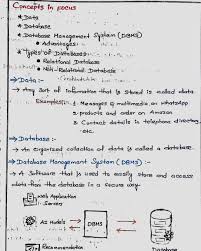 Concepts in focus
* Data
* Database
* Database Management System (DBMS)
• Advantages
* Types of Databases
• Relational Database
• Non-Relational Database
→ Data :-
→ Any sort of information that is stored is called data
Examples:- 1. Messages & multimedia on WhatsApp
2. products and orders on Amazon
3. Contact details in telephone directory,
etc.
→ Database :-
→ An organised collection of data is called a database.
→ Database Management System (DBMS) :-
→ A Software that is used to easily store and access
data from the database in a secure way.
Web Application
Server
DBMS
Database
Recommendation